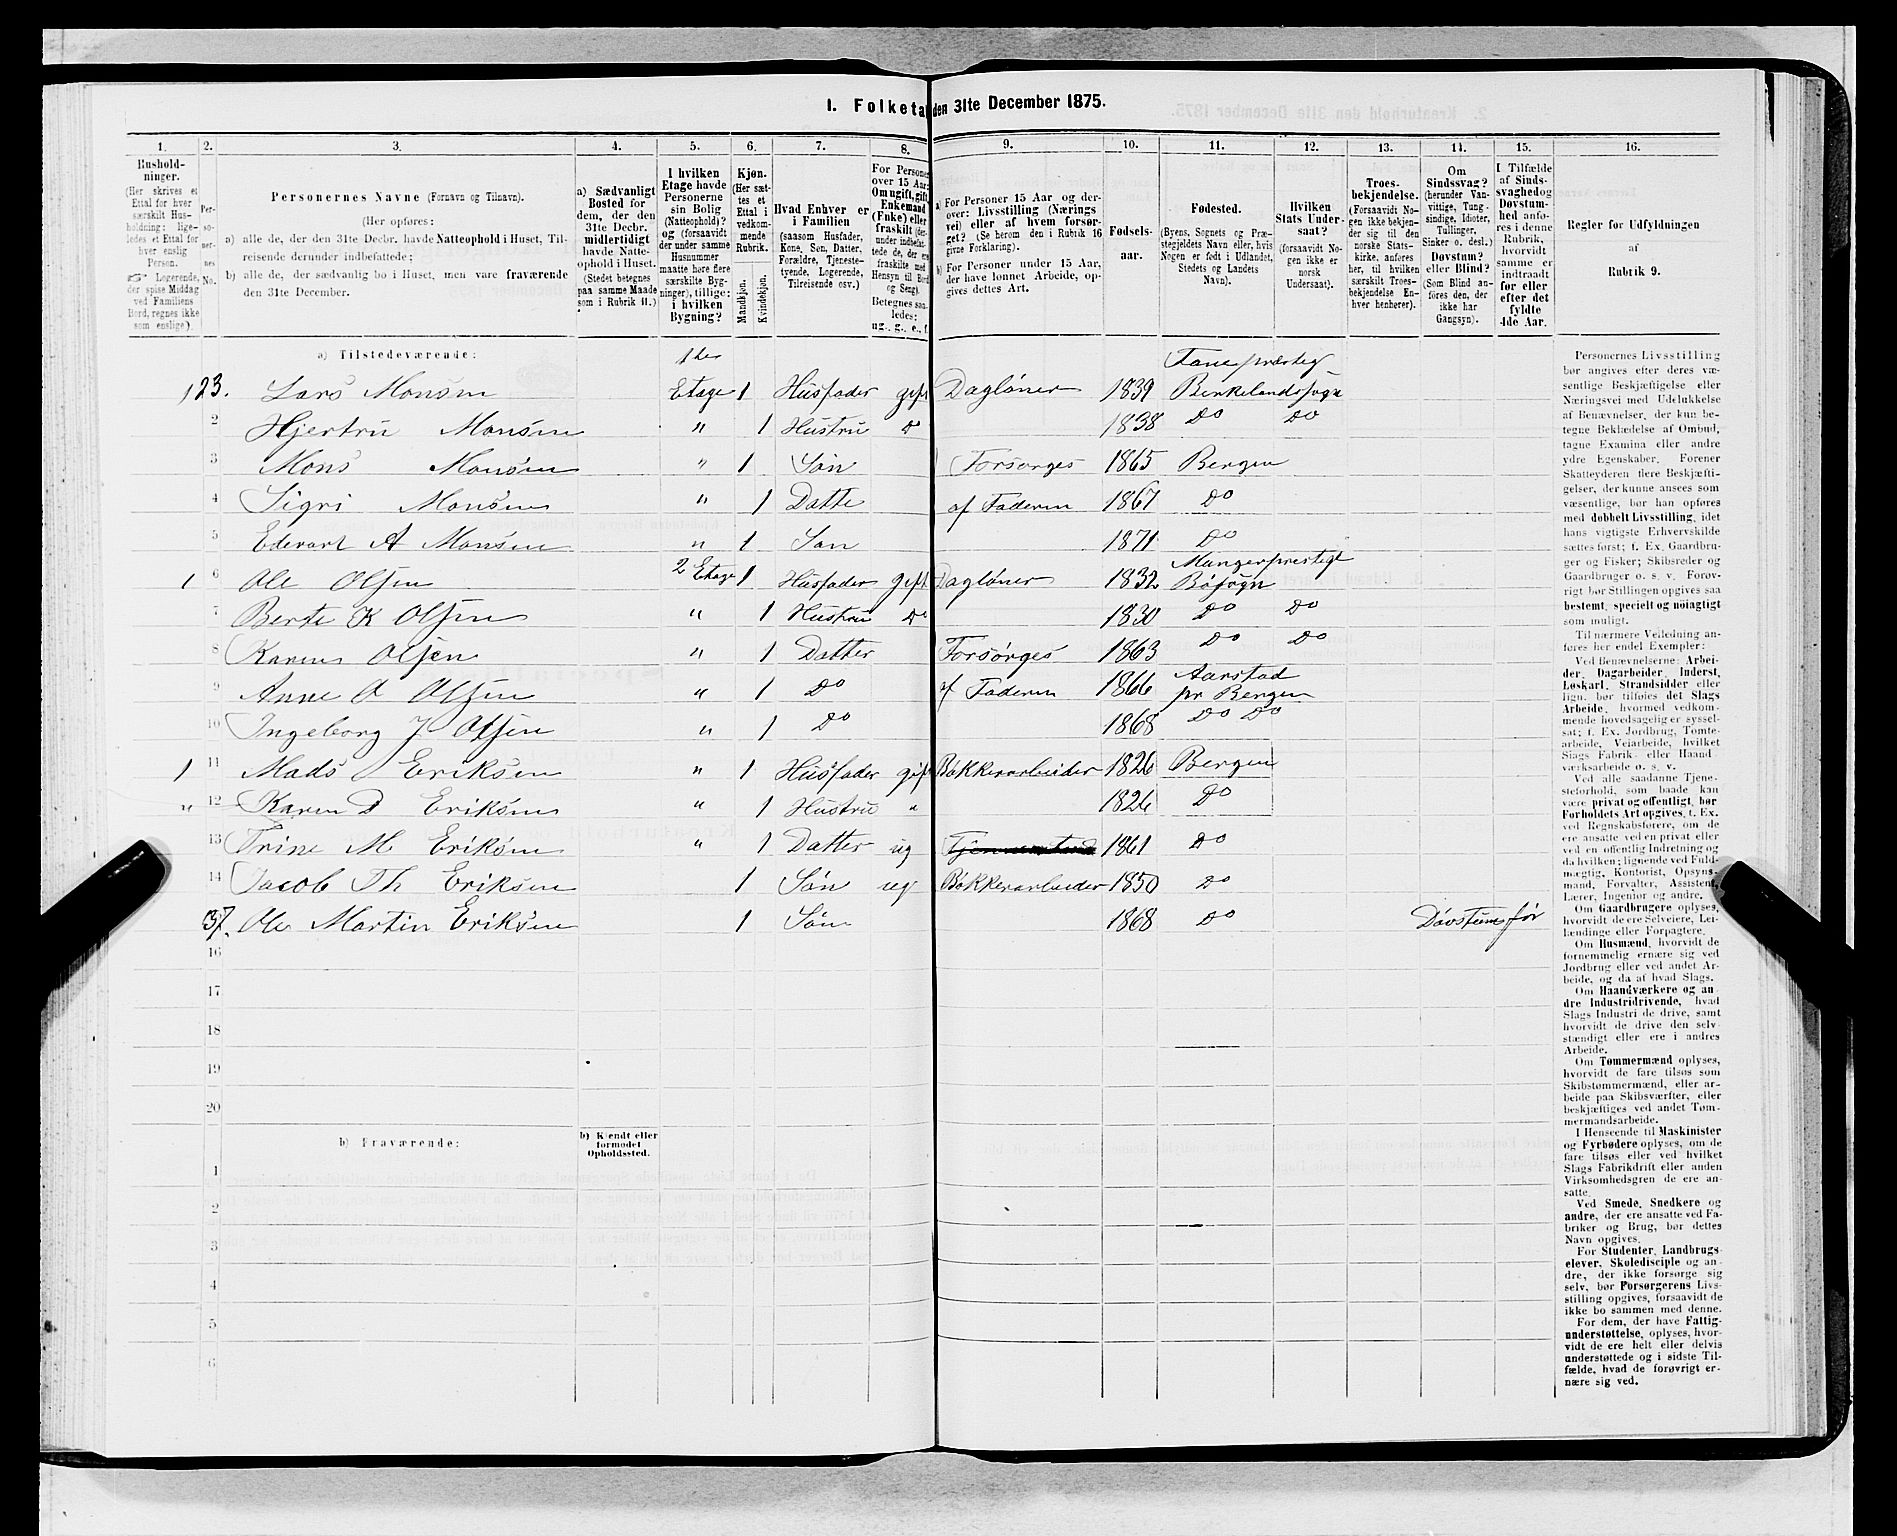 1. Folketal den 31te December 1875.
1. 2. 3. 4. 5. 6. 7. 8. 9. 10. 11. 12. 13. 14. 15. 16.
Husholdninger.
(Her skrives et
Ettal for hver
særskilt Husholdning;
ligeledes et Ettal for
hver enslig
Person.
☞ Logerende,
der spise Middag
ved Familiens
Bord, regnes ikke
som enslige).
Personernes No.
Personernes Navne (Fornavn og Tilnavn).
(Her opføres:
a) alle de, der den 31te Decbr. havde Natteophold i Huset, Tilreisende derunder indbefattede;
b) alle de, der sædvanlig bo i Huset, men vare fraværende
den 31te December.
a) Sædvanligt
Bosted for
dem, der den
31te Decbr.
midlertidigt
havde Natteophold
i Huset.
(Stedet betegnes
paa samme Maade
som i Rubrik 11.)
I hvilken
Etage havde
Personerne
sin Bolig
(Natteophold)?
og (forsaavidt
der under samme
Husnummer
maatte høre flere
særskilte Bygninger), tillige:
i hvilken
Bygning?
Kjøn.
(Her sættes et
Ettal i
vedkommende
Rubrik.
Mandkjøn.
Kvindekjøn.
Hvad Enhver er
i Familien
(saasom Husfader,
Kone, Søn, Datter,
Forældre, Tjenestetyende, Logerende,
Tilreisende osv.)
For Personer
over 15 Aar:
Om ugift, gift,
Enkemand
(Enke) eller
fraskilt (derunder indbefattede, der ere
fraskilte med
Hensyn til Bord
og Seng).
Betegnes saaledes:
ug., g., e., f.
a) For Personer 15 Aar og derover: Livsstilling (Næringsvei) eller af hvem forsørget? (Se herom den i Rubrik 16
givne Forklaring).
b) For Personer under 15 Aar,
der have lønnet Arbeide, opgives dettes Art.
Fødselsaar.
Fødested.
(Byens, Sognets og Præstegjeldets Navn eller, hvis
Nogen er født i Udlandet,
Stedets og Landets
Navn).
Hvilken
Stats Undersaat?
(forsaavidt Nogen ikke er
norsk
Undersaat).
Troesbekjendelse.
(Forsaavidt Nogen ikke bekjender sig til den
norske Statskirke, anføres
her, til hvilken
særskilt Troesbekjendelse Enhver henhører).
Om
Sindssvag?
(herunder Vanvittige, Tungsindige, Idioter,
Tullinger,
Sinker o. desl.)
Døvstum?
eller Blind?
(Som Blind anføres den, der
ikke har
Gangsyn).
I Tilfælde
af Sindssvaghed og
Døvstumhed anføres i denne
Rubrik,
hvorvidt
samme er
indtraadt
før eller
efter det
fyldte
4de Aar.
Regler for Udfyldningen
af
Rubrik 9.
a) Tilstedeværende:
1ste Fane præsteg
123. Lars Monsen Etage 1 Husfader gift Dagløner 1839 Birkelandsogn
2 Hjertru Monsen " 1 Hustru Do 1838 Do Do
3 Mons Monsen " 1 Søn Forsørges 1865 Bergen
4 Sigri Monsen " 1 Datte af Faderen 1867 Do
5 Edevart A Monsen " 1 Søn 1871 Do
Mangerprestegt
1 6 Ole Olsen 2 Etage 1 Husfader gift Dagløner 1832 Bøsogn
7 Berte K Olsen " 1 Hustru Do 1830 Do Do
8 Karen Olsen " 1 Datter Forsørges 1863 Do Do
9 Anne O Olsen " 1 Do af Faderen 1866 Aarstad
pr Bergen
10 Ingeborg J Olsen " 1 Do 1868 Do Do
1 11 Mads Eriksen " 1 Husfader gift Bøkkerarbeider 1826 Bergen
" 12 Karen D Eriksen " 1 Hustru " 1826 Do
13 Trine M Eriksen " 1 Datter ug 1861 Do
14 Jacob Th Eriksen 1 Søn ug Bøkkerarbeider 1850 Do
37. Ole Martin Eriksen 1 Søn 1868 Do Døvstum før
16
17
18
19
20
b) Fraværende:
b) Kjendt eller
formodet
Opholdssted.
1
2
3
4
5
6
Personernes Livsstilling
bør angives efter deres væsentlige Beskjæftigelse eller
Næringsvei med Udelukkelse
af Benævnelser, der kun betegne Beklædelse af Ombud,
tagne Examina eller andre
ydre Egenskaber. Forener
Skatteyderen flere Beskjæftigelser, der kunne ansees som
væsentlige, bør han opføres
med dobbelt Livsstilling, idet
hans vigtigste Erhvervskilde
sættes først; f. Ex. Gaardbruger og Fisker; Skibsreder og
Gaardbruger o. s. v. Forøvrigt bør Stillingen opgives saa
bestemt, specielt og nøiagtigt
som muligt.
Til nærmere Veiledning anføres her endel Exempler:
Ved Benævnelserne: Arbeider, Dagarbeider, Inderst,
Løskarl, Strandsidder eller
lign. bør tilføies det Slags
Arbeide, hvormed vedkommende hovedsagelig er sysselsat; f. Ex. Jordbrug, Tomtearbeide, Veiarbeide, hvilket
Slags Fabrik- eller Haandværksarbeide o. s. v.
Ved alle saadanne Tjenesteforhold, som baade kan
være privat og offentligt, bør
Forholdets Art opgives, f. Ex.
ved Regnskabsførere, om de
ere ansatte ved en privat eller
ved en offentlig Indretning og
da hvilken; lignende ved Fuldmægtig, Kontorist, Opsynsmand, Forvalter, Assistent,
Lærer, Ingeniør og andre.
Om Gaardbrugere oplyses,
hvorvidt de ere Selveiere, Leilændinge eller Forpagtere.
Om Husmænd, hvorvidt de
fornemmelig ernære sig ved
Jordbrug eller ved andet Arbeide, og da af hvad Slags.
Om Haandværkere og andre Industridrivende, hvad
Slags Industri de drive, samt
hvorvidt de drive den selvstændigt eller ere i andres
Arbeide.
Om Tømmermænd oplyses,
hvorvidt de fare tilsøs som
Skibstømmermænd, eller arbeide paa Skibsværfter, eller
beskjæftiges ved andet Tømmermandsarbeide.
I Henseende til Maskinister
og Fyrbødere oplyses, om de
fare tilsøs eller ved hvilket
Slags Fabrikdrift eller anden
Virksomhedsgren de ere ansatte.
Ved Smede, Snedkere og
andre, der ere ansatte ved Fabriker og Brug, bør dettes
Navn opgives.
For Studenter, Landbrugselever, Skoledisciple og andre, der ikke forsørge sig
selv, bør Forsørgerens Livsstilling opgives, forsaavidt de
ikke bo sammen med denne.
For dem, der have Fattigunderstøttelse, oplyses, hvorvidt de ere helt eller delvis
understøttede og i sidste Tilfælde, hvad de forøvrigt ernære sig ved.